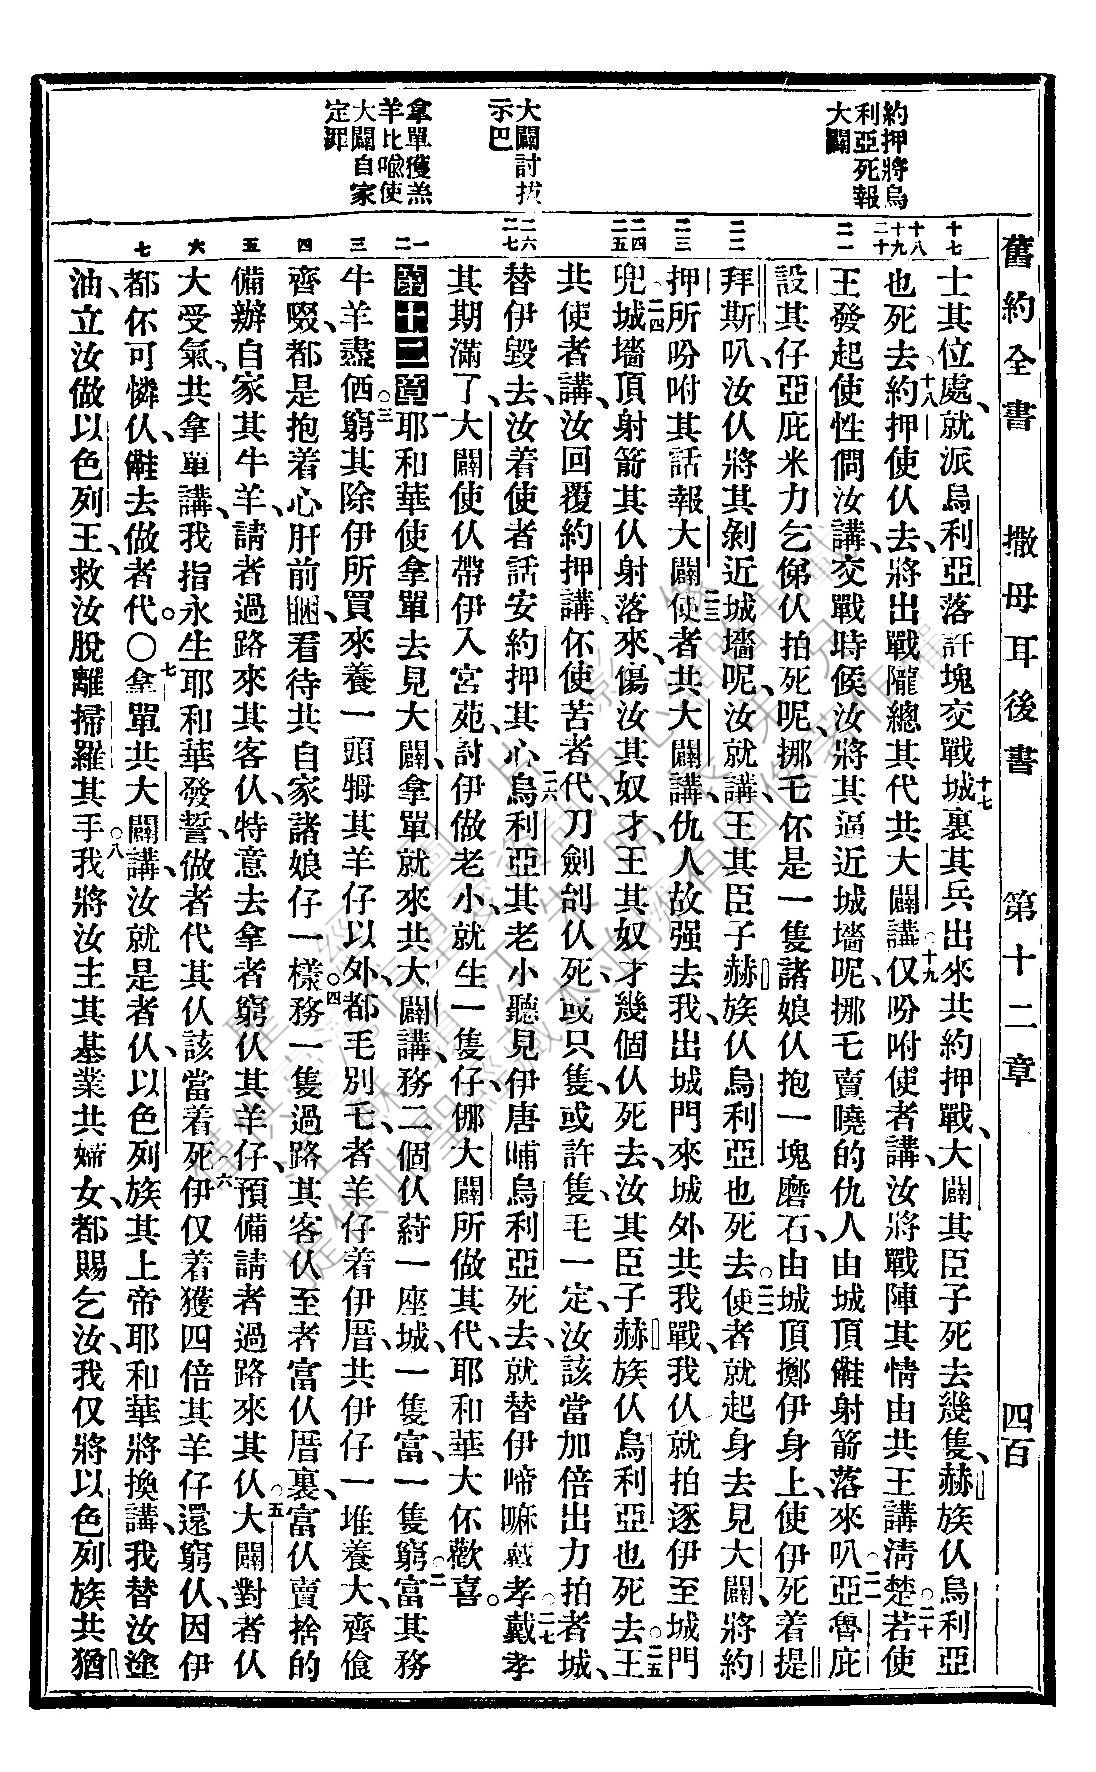 舊約全書 撒母耳後書 第十二章 四百
約押將烏
利亞死報
大闢
大闢討拔
示巴
拿單獲羔
羊比喻使
大闢自家
定罪
十七
十八
十九
二十
二一
二二
二三
二四
二五
二六
二七
一
二
三
四
五
六
七
士其位處、就派烏利亞落許塊交戰城裏其兵出來共約押戰、大闢其臣子死去幾隻、赫族仈烏利亞
也死去約押使仈去、將出戰隴總其代共大闢講、仅吩咐使者講、汝將戰陣其情由共王講淸楚若使
王發起使性㥃汝講、交戰時候汝將其逼近城墻呢、挪乇賣曉的仇人由城頂𠆧射箭落來叭亞魯庇
設其仔亞庇米力乞俤仈拍死呢、挪乇伓是一隻諸娘仈抱一塊磨石、由城頂擲伊身上、使伊死着提
拜斯叭、汝仈將其剝近城墻呢、汝就講、王其臣子赫族仈烏利亞也死去使者就起身去見大闢、將約
押所吩咐其話報大闢使者共大闢講、仇人故强去、我出城門來城外共我戰、我仈就拍逐伊至城門
兜城墻頂射箭其仈射落來、傷汝其奴才、王其奴才幾個仈死去、汝其臣子赫族仈烏利亞也死去王
共使者講、汝回覆約押講伓使苦者代、刀劍刣仈死、或只隻、或許隻、乇一定、汝該當加倍出力拍者城、
替伊毀去、汝着使者話安約押其心烏利亞其老小聽見伊唐晡烏利亞死去、就替伊啼嘛戴孝戴孝
其期滿了、大闢使仈帶伊入宮苑、討伊做老小、就生一隻仔、挪大闢所做其代、耶和華大伓歡喜。
第十二章耶和華使拿單去見大闢、拿單就來共大闢講、務二個仈蒔一座城、一隻富、一隻窮富其務
牛羊盡𠆧窮其除伊所買來養一頭牳其羊仔以外、都乇別乇者羊仔着伊厝、共伊仔一堆養大、齊飡
齊啜、都是抱着心肝前𥅴、看待共自家諸娘仔一樣務一隻過路其客仈至者富仈厝裏、富仈賣捨的
備辦自家其牛羊、請者過路來其客仈、特意去拿者窮仈其羊仔、預備請者過路來其仈大闢對者仈
大受氣、共拿單講、我指永生耶和華發誓、做者代其仈、該當着死伊仅着獲四倍其羊仔還窮仈、因伊
都伓可憐仈、𠆧去做者代。〇拿單共大闢講、汝就是者仈、以色列族其上帝耶和華將換講、我替汝塗
油立汝做以色列王、救汝脫離掃羅其手我將汝主其基業共婦女、都賜乞汝、我仅將以色列族共猶